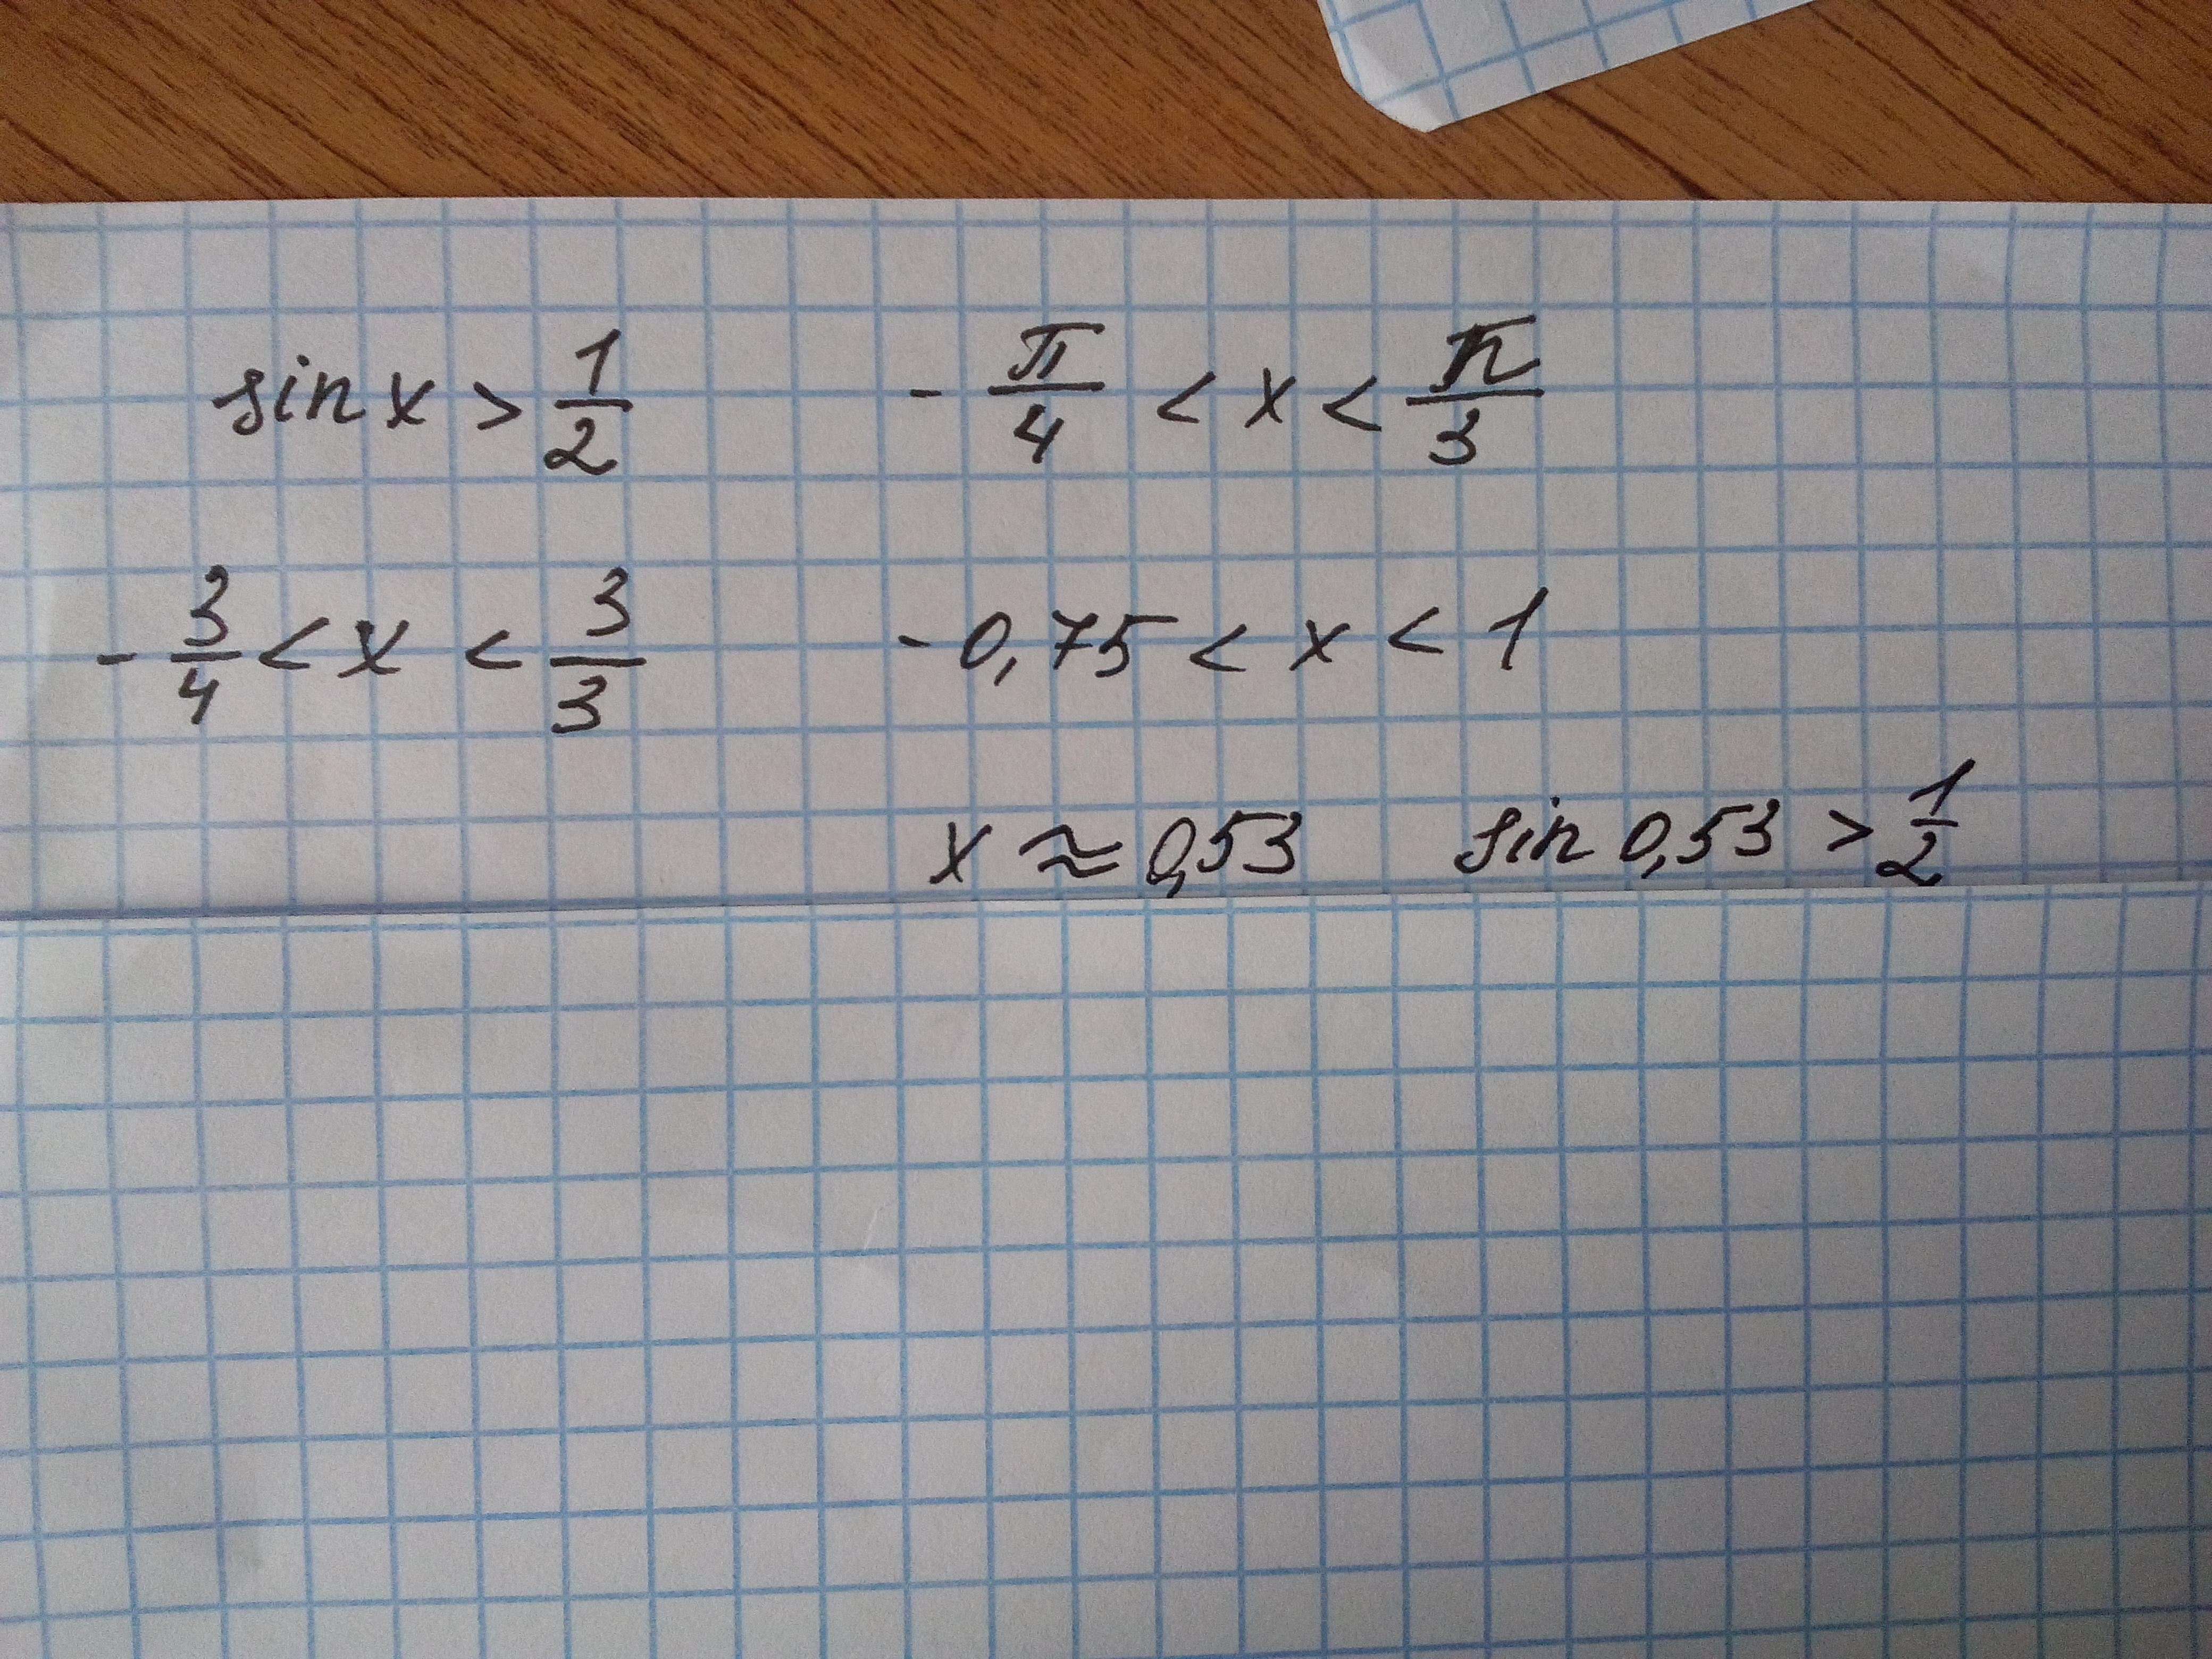 sin x > 1/2   - π/4 < x < π/3
- 3/4 < x < 3/3   - 0,75 < x < 1
x ≈ 0,53   sin 0,53 > 1/2